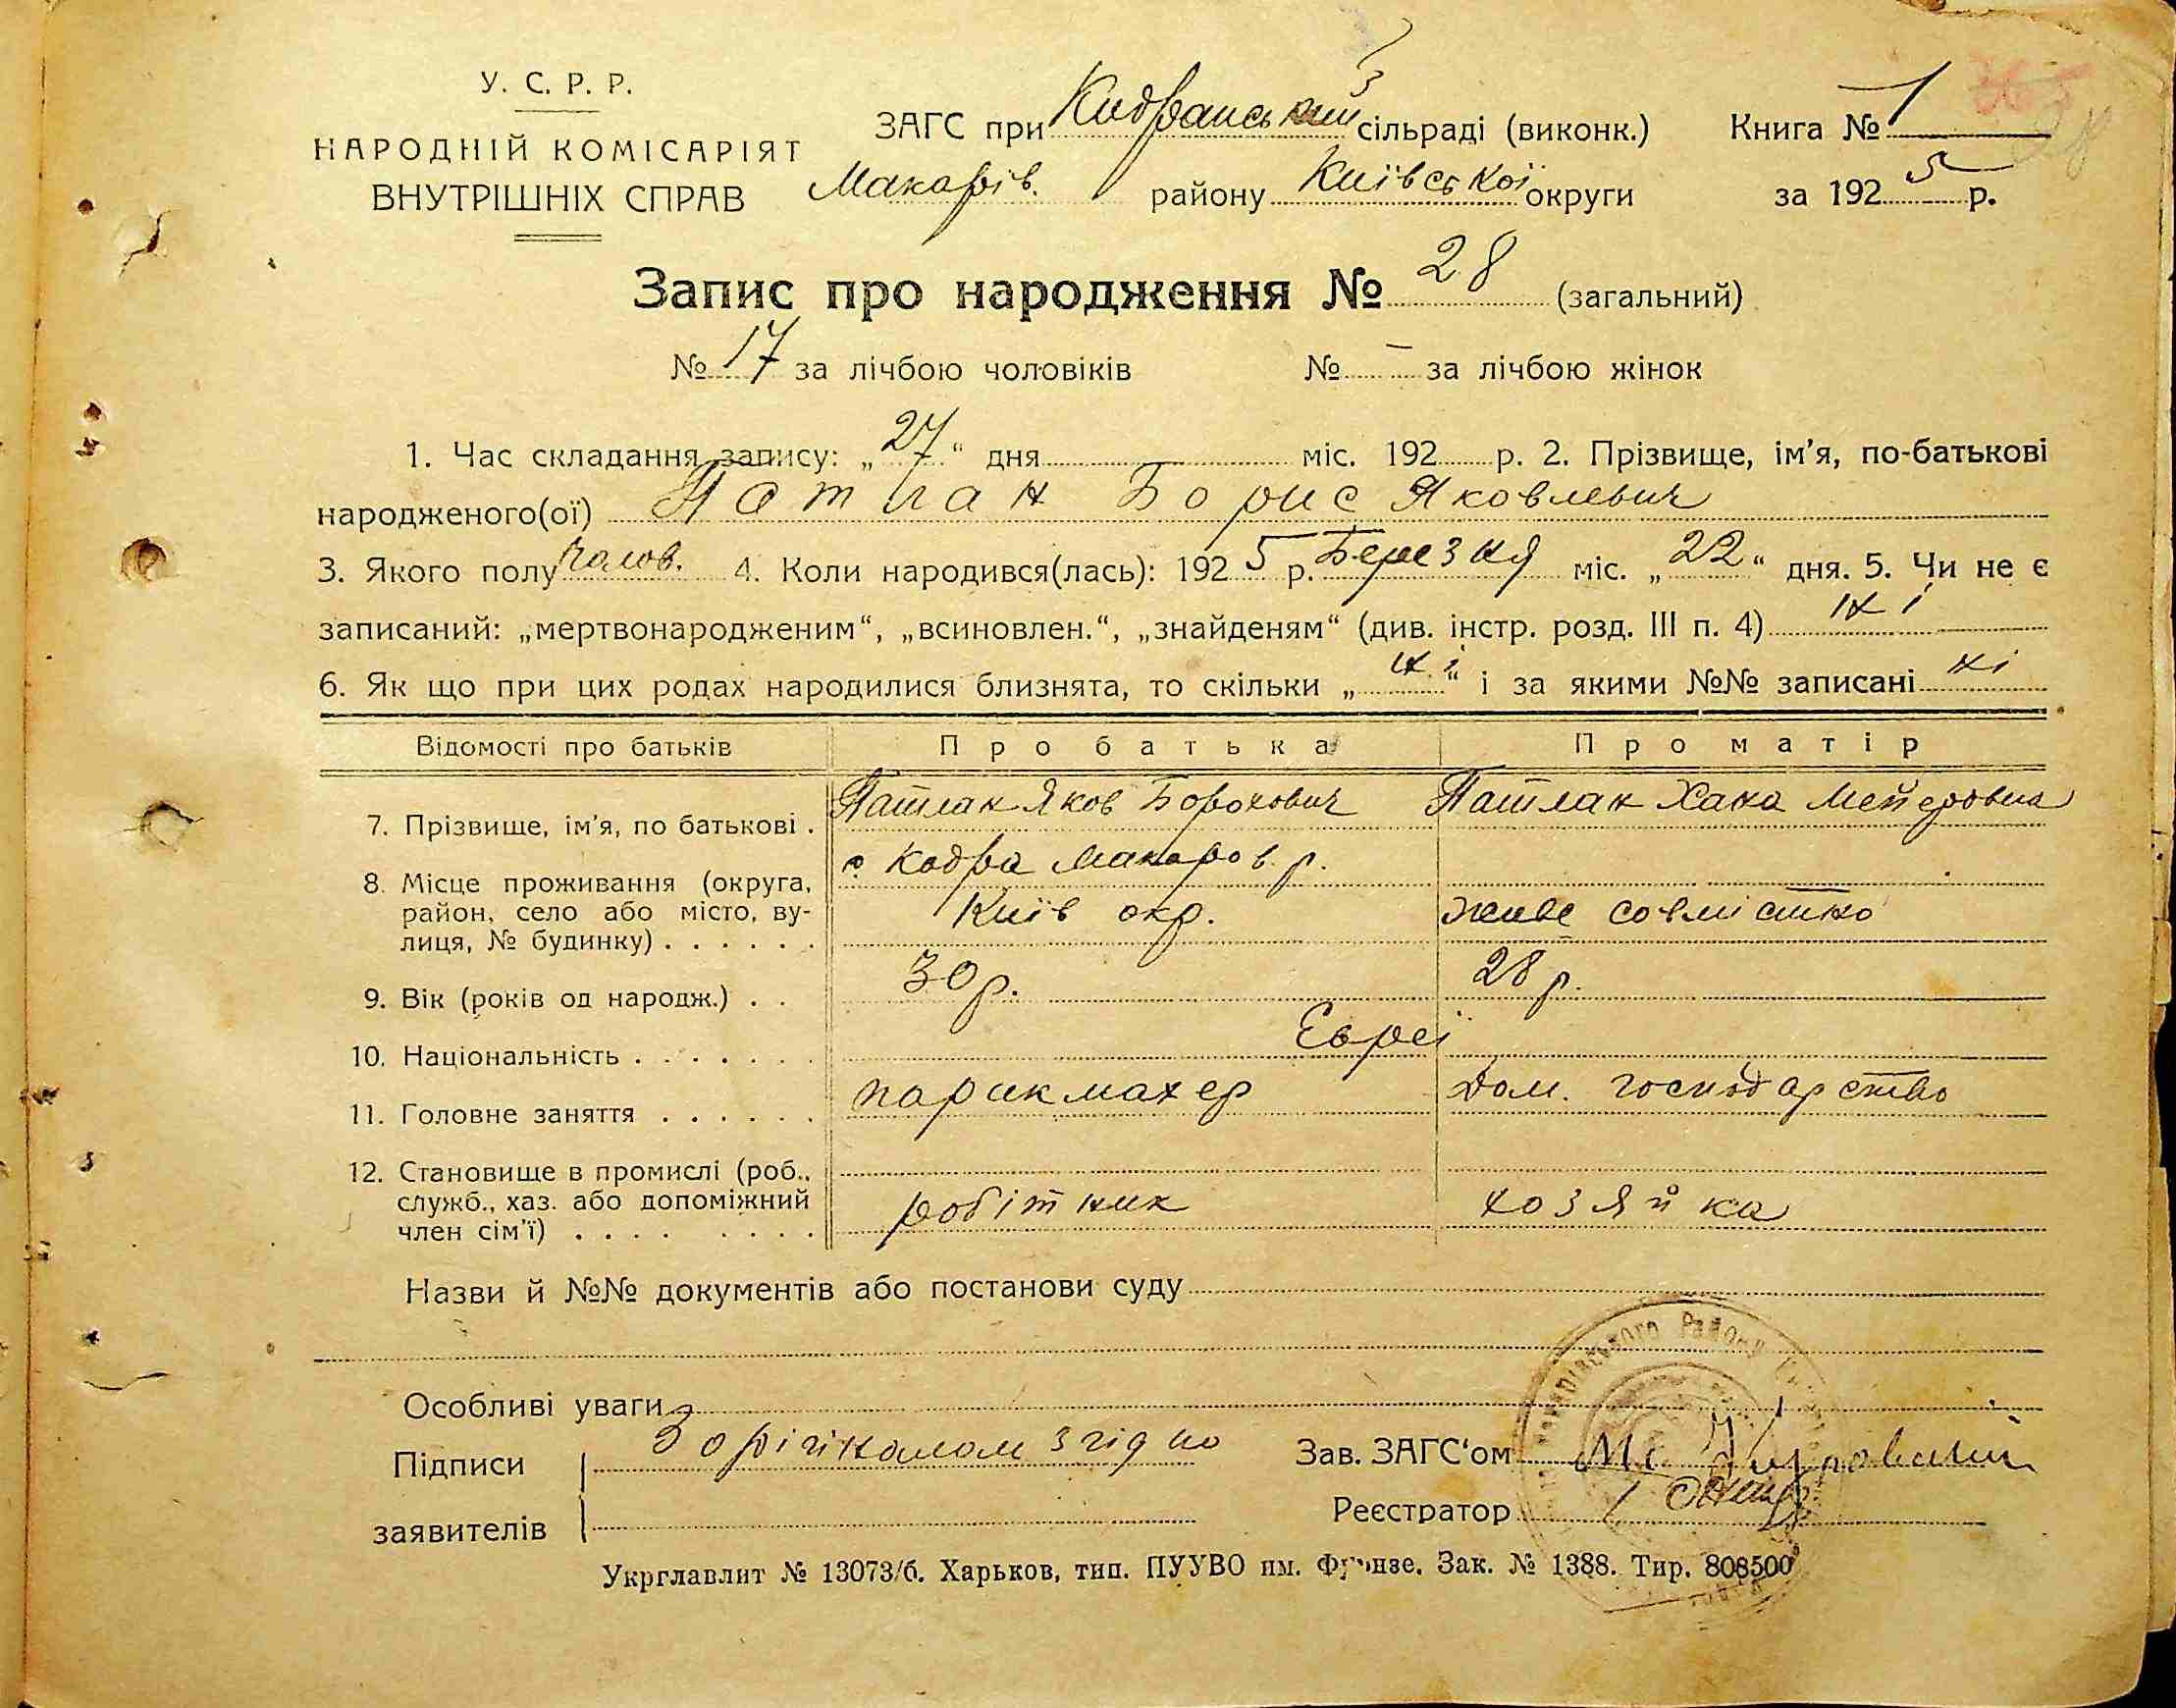 У. С. Р. Р.
НАРОДНІЙ КОМІСАРІЯТ
ВНУТРІШНІХ СПРАВ
ЗАГС при Кодранський сільраді (виконк.)
Макарів. району Київської округи
Книга № 1
за 1925 р.
Запис про народження № 28 (загальний)
№ 17 за лічбою чоловіків № – за лічбою жінок
1. Час складання запису: „27“ дня міс. 192 р. 2. Прізвище, ім'я, по-батькові
народженого(ої) Патлан Борис Яковлевич
3. Якого полу Чолов. 4. Коли народився(лась): 1925 р. Березня міс. „22“ дня. 5. Чи не є
записаний: „мертвонародженим“, „всиновлен.“, „знайденям“ (див. інстр. розд. III п. 4) ні
6. Як що при цих родах народилися близнята, то скільки „ні“ і за якими №№ записані ні
Відомості про батьків Про батька Про матір
7. Прізвище, ім'я, по батькові . Патлан Яков Борохович Патлан Хана Мейеровна
8. Місце проживання (округа, с Кодра Макаров. р.
район, село або місто, ву- Київ окр. живе совмістно
лиця, № будинку) . . . . . .
9. Вік (років од народж.) . . 30 р. 28 р.
10. Національність . . . . . . . Евреї
11. Головне заняття . . . . . . парикмахер Дом. господарство
12. Становище в промислі (роб.,
служб., хаз. або допоміжний робітник хозяйка
член сім'ї) . . . . . . . .
Назви й №№ документів або постанови суду
Особливі уваги
Підписи З орігіналом згідно Зав. ЗАГС'ом
заявителів Реєстратор
Укрглавлит № 13073/б. Харьков, тип. ПУУВО им. Фрунзе. Зак. № 1388. Тир. 808500